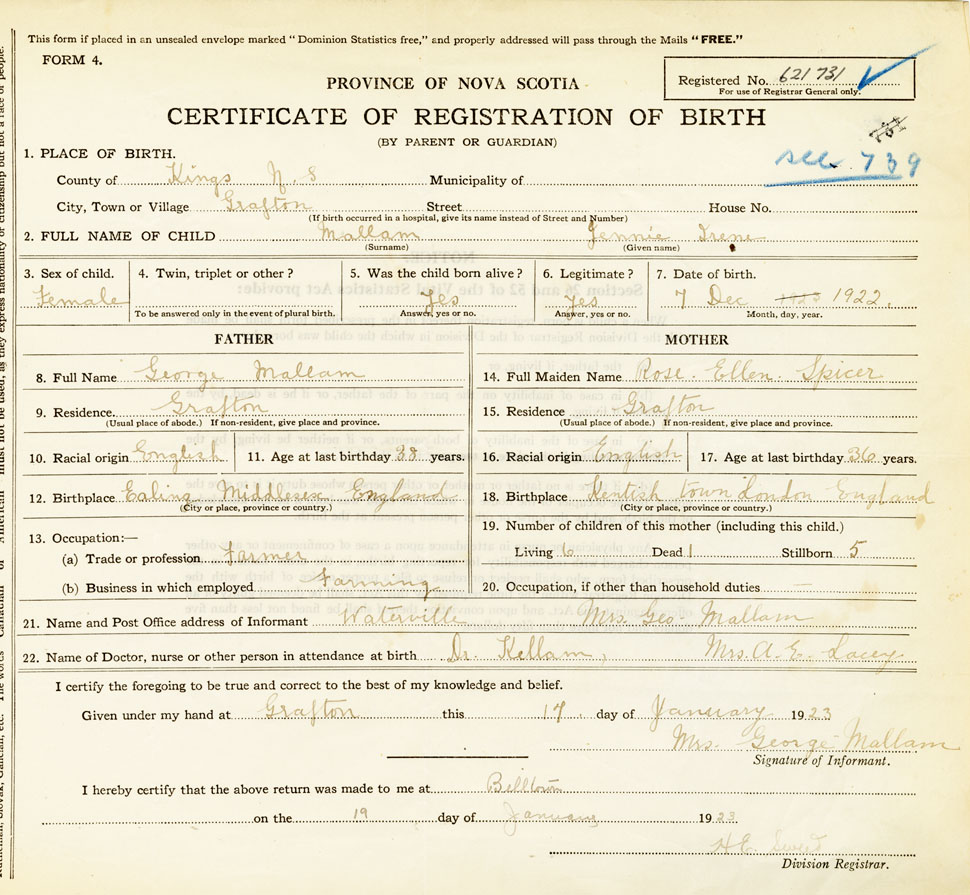 This form if placed in an unsealed envelope marked "Dominion Statistics free," and properly addressed will pass through the Mails "FREE."
FORM 4.
PROVINCE OF NOVA SCOTIA
Registered No. 621731
For use of Registrar General only.
CERTIFICATE OF REGISTRATION OF BIRTH
(BY PARENT OR GUARDIAN)
see 739
1. PLACE OF BIRTH.
County of Kings N. S Municipality of
City, Town or Village Grafton Street House No.
(If birth occurred in a hospital, give its name instead of Street and Number)
2. FULL NAME OF CHILD Mallam Jennie Irene
(Surname) (Given name)
3. Sex of child. 4. Twin, triplet or other? 5. Was the child born alive? 6. Legitimate? 7. Date of birth.
Female Yes Yes 7 Dec 1923 1922.
To be answered only in the event of plural birth. Answer, yes or no. Answer, yes or no. Month, day, year.
FATHER MOTHER
8. Full Name George Mallam 14. Full Maiden Name Rose. Ellen. Spicer
9. Residence. Grafton 15. Residence Grafton
(Usual place of abode.) If non-resident, give place and province. (Usual place of abode.) If non-resident, give place and province.
10. Racial origin English 11. Age at last birthday 38 years. 16. Racial origin English 17. Age at last birthday 36 years.
12. Birthplace Ealing Middlesex England 18. Birthplace Kentish town London England
(City or place, province or country.) (City or place, province or country.)
13. Occupation:— 19. Number of children of this mother (including this child.)
(a) Trade or profession Farmer Living 6 Dead 1 Stillborn 5
(b) Business in which employed Farming 20. Occupation, if other than household duties
21. Name and Post Office address of Informant Waterville Mrs. Geo. Mallam
22. Name of Doctor, nurse or other person in attendance at birth Dr. Kellam, Mrs. A. E. Lacey
I certify the foregoing to be true and correct to the best of my knowledge and belief.
Given under my hand at Grafton this 17. day of January 1923
Mrs. George Mallam
Signature of Informant.
I hereby certify that the above return was made to me at Billtown
on the 19 day of January 1923
Division Registrar.